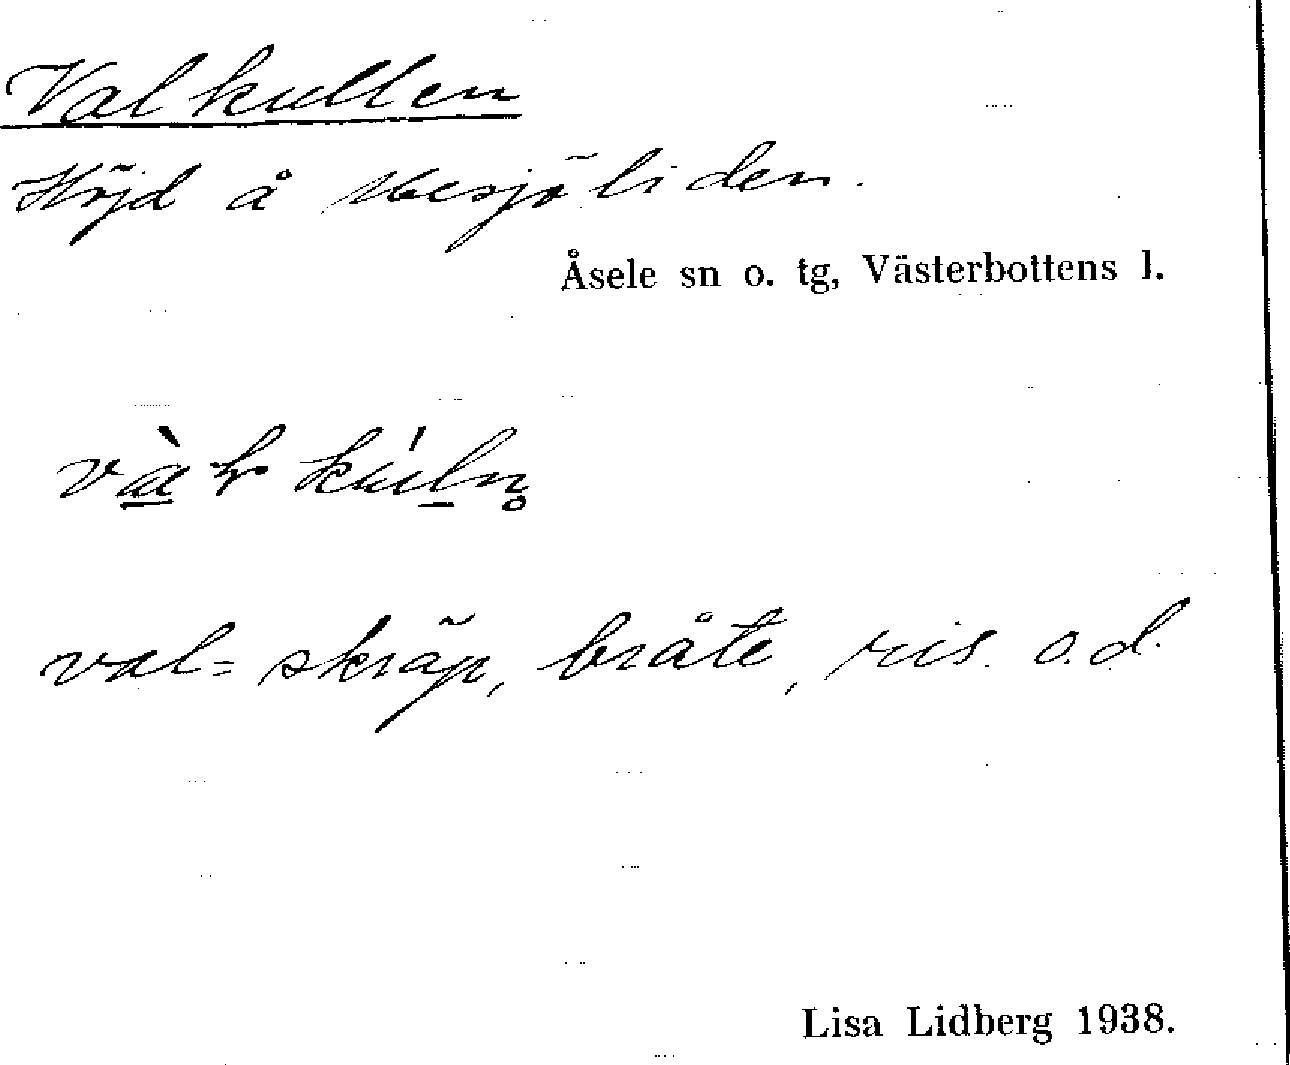 Valkullen
Höjd å Mesjöliden.
Åsele sn o. tg, Västerbottens l.
val = skräp, bråte, ris o.d.
Lisa Lidberg 1938.